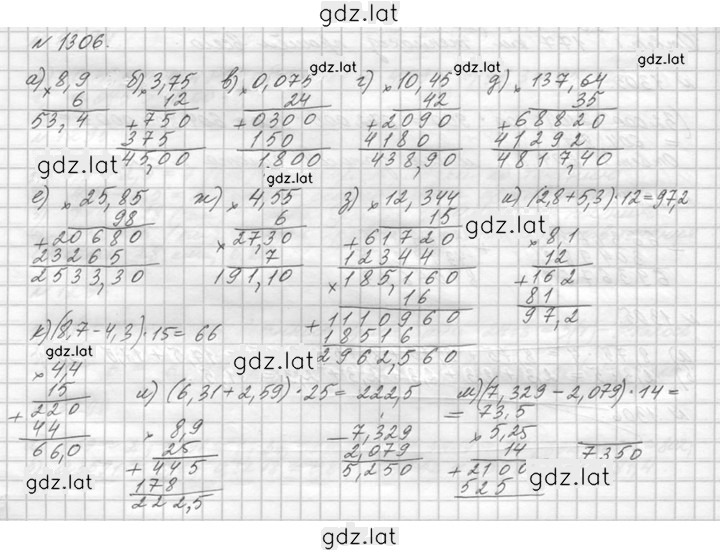 gdz.lat
№ 1306.
а) × 8,9
6
53,4
б) × 3,75
12
+ 750
375
45,00
в) × 0,075
24
+ 0300
150
1.800
г) × 10,45
42
+ 2090
4180
438,90
д) × 137,64
35
+ 68820
41292
4817,40
gdz.lat
gdz.lat
gdz.lat
gdz.lat
gdz.lat
е) × 25,85
98
+ 20680
23265
2533,30
ж) × 4,55
6
× 27,30
7
191,10
з) × 12,344
15
+ 61720
12344
× 185,160
16
+ 1110960
18516
2962,560
и) (2,8+5,3)·12=97,2
× 8,1
12
+ 162
81
97,2
gdz.lat
к) (8,7-4,3)·15=66
× 4,4
15
+ 220
44
66,0
gdz.lat
л) (6,31+2,59)·25=222,5
× 8,9
25
+ 445
178
222,5
м) (7,329-2,079)·14=
= 73,5
- 7,329
2,079
5,250
× 5,25
14
+ 2100
525
7350
gdz.lat
gdz.lat
gdz.lat